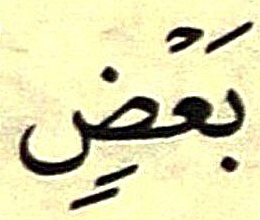 بَعْضٍ